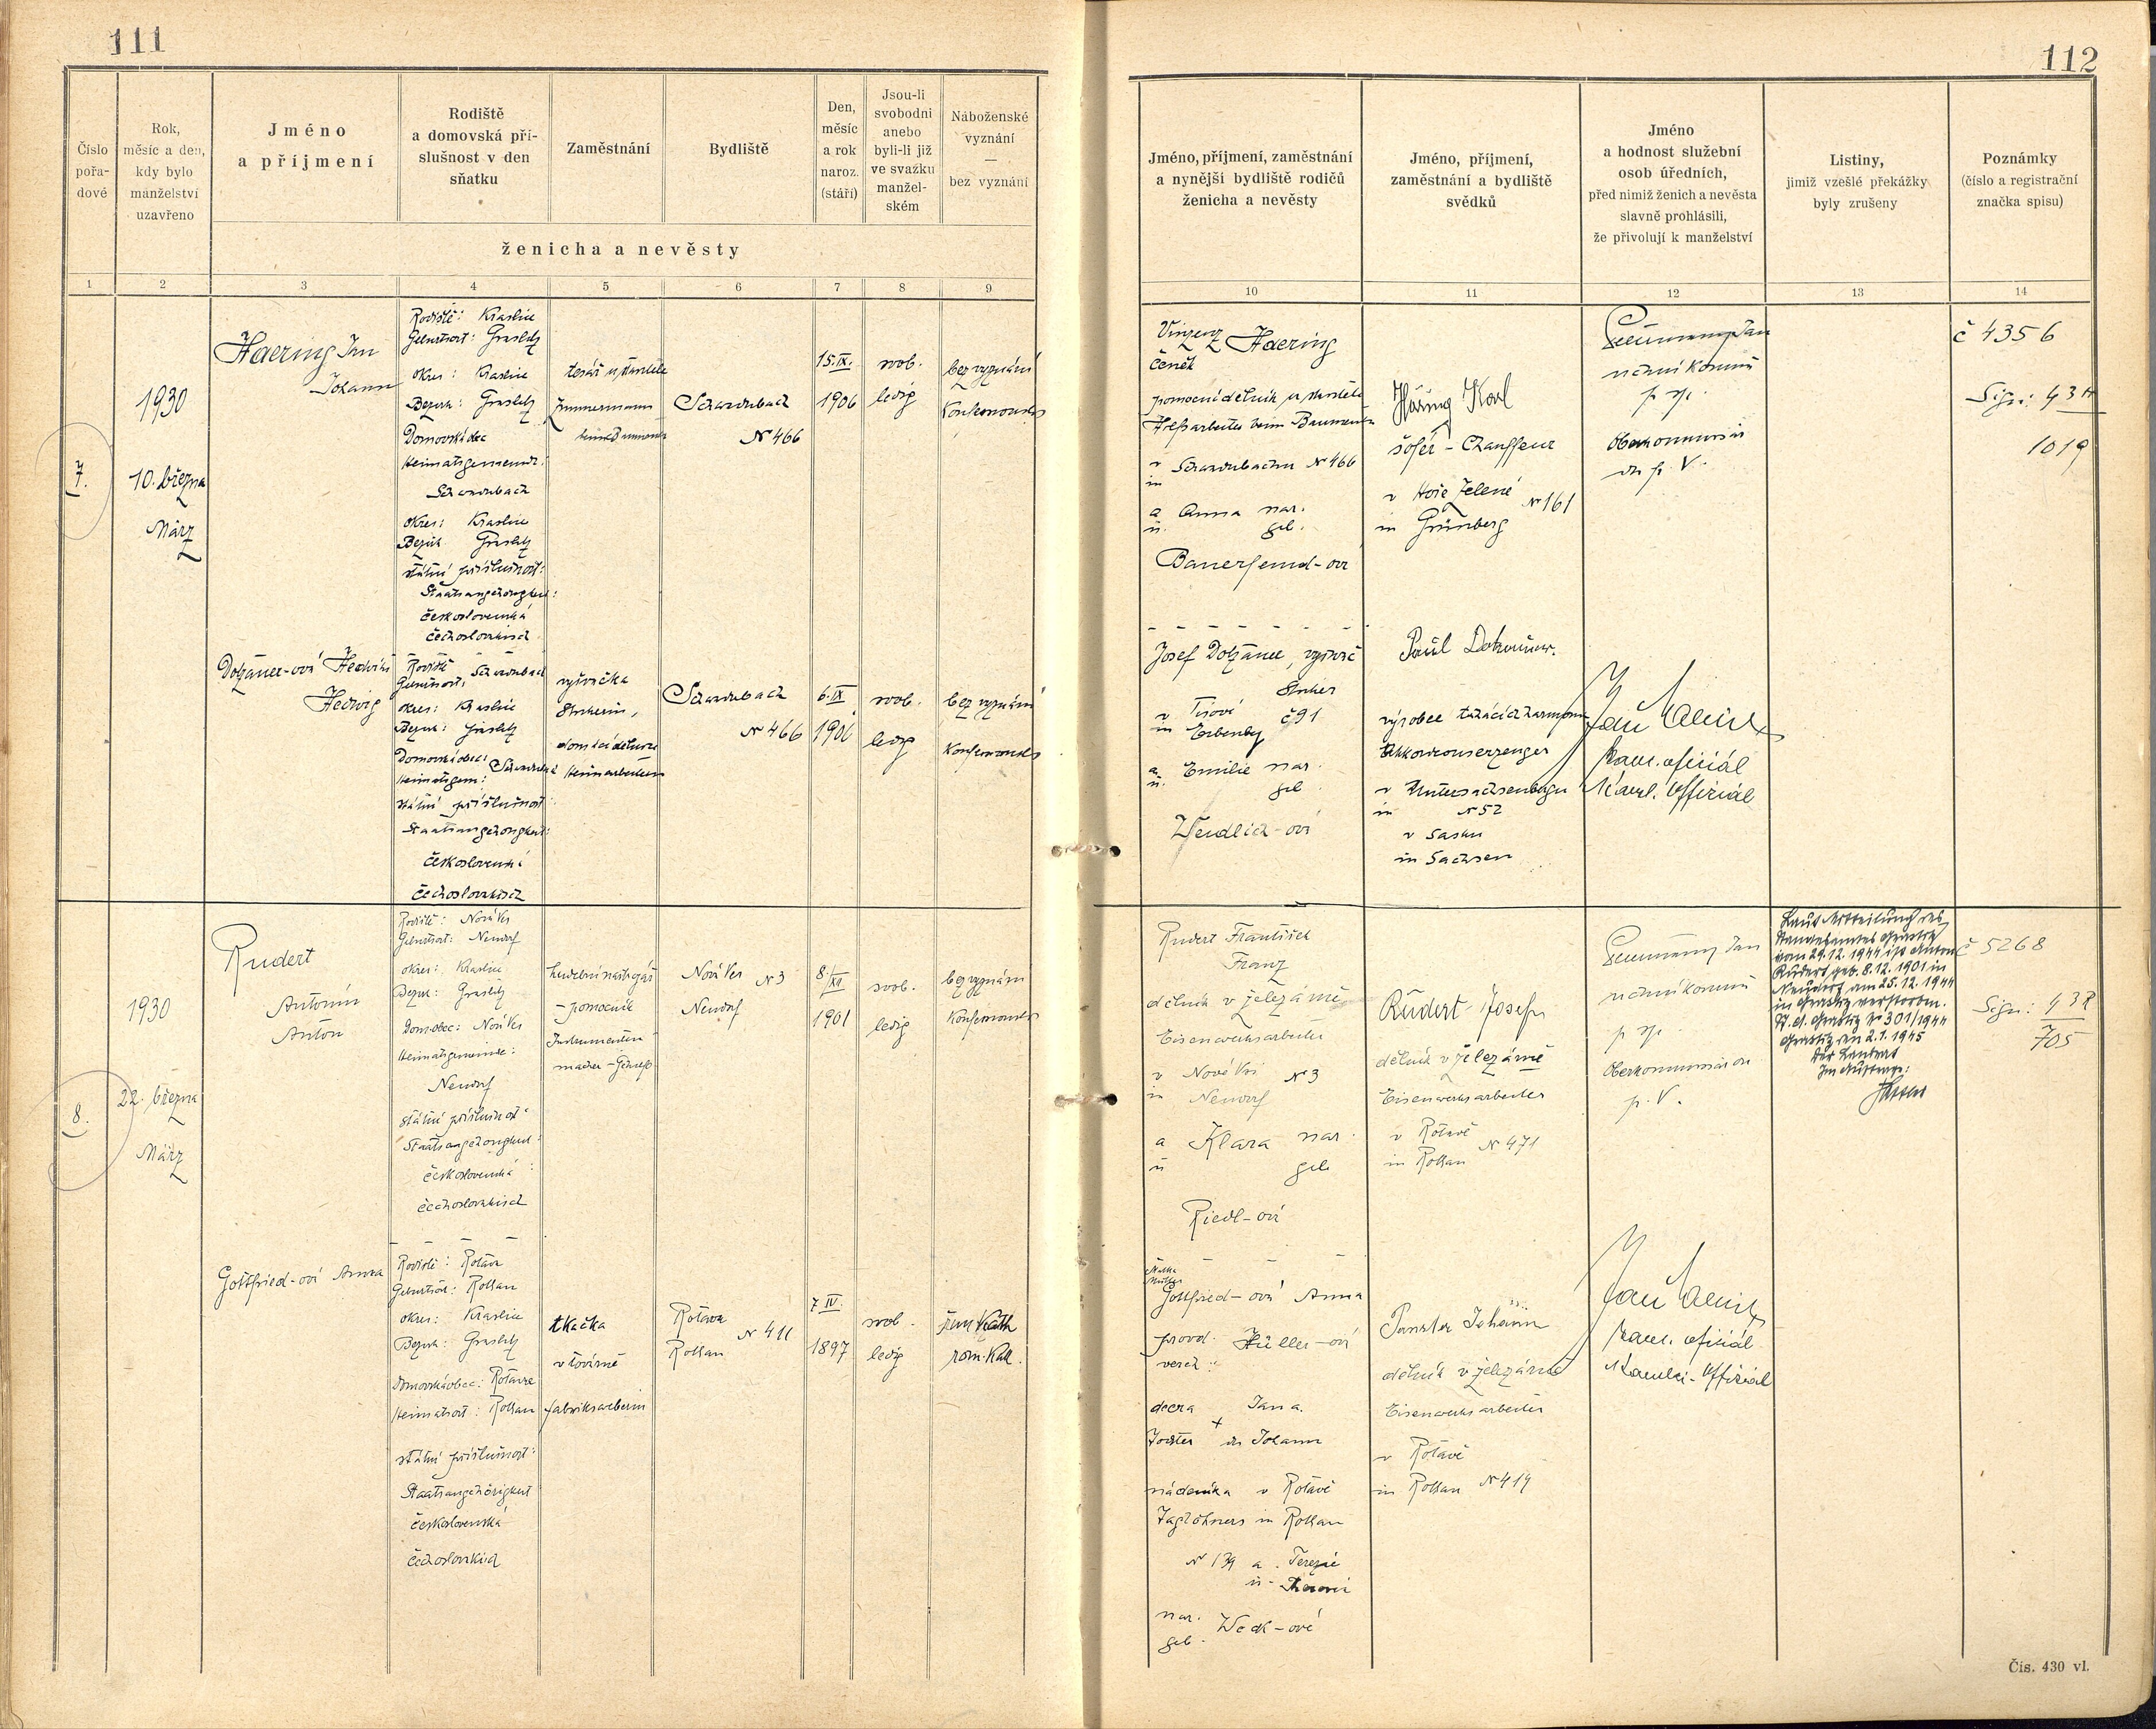 111
Číslo
pořa-
dové
Rok,
měsíc a den,
kdy bylo
manželství
uzavřeno
Jméno
a příjmení
Rodiště
a domovská pří-
slušnost v den
sňatku
Zaměstnání
Bydliště
Den,
měsíc
a rok
naroz.
(stáří)
Jsou-li
svobodni
anebo
byli-li již
ve svazku
manžel-
ském
Náboženské
vyznání
—
bez vyznání
ženicha a nevěsty
1 2 3 4 5 6 7 8 9
7.
1930
10. března
März
Haering Jan
Johann
Rodiště: Kraslice
Geburtsort: Graslitz
okres: Kraslice
Bezirk: Graslitz
Domovská obec
Heimatsgemeinde:
Schwaderbach
okres: Kraslice
Bezirk Graslitz
státní příslušnost:
Staatsangehörigkeit:
československá
čechoslovakisch
tesař u stavitele
Zimmermann
Schwaderbach
N 466
15.IX.
1906
svob.
ledig
bez vyznání
Konfessionslos
Dotzauer-ová Hedvika
Hedwig
Rodiště
Geburtsort: Schwaderbach
okres: Kraslice
Bezirk: Graslitz
Domovská obec:
Heimatsgem: Schwaderbach
státní příslušnost
Staatsangehörigkeit:
československá
čechoslovakisch
vyšívačka
Stickerin,
domácí dělnice
Heimarbeiterin
Schwaderbach
N 466
6.IX.
1906
svob.
ledig
bez vyznání
Konfessionslos
8.
1930
22. března
März
Rudert
Antonín
Anton
Rodiště: Nová Ves
Geburtsort: Neudorf
okres: Kraslice
Bezirk: Graslitz
Dom. obec: Nová Ves
Heimatsgemeinde:
Neudorf
státní příslušnost
Staatsangehörigkeit:
československá
čechoslovakisch
- pomocník
Instrumenten
macher - Gehilfe
Nová Ves N 3
Neudorf
8.XII
1901
svob.
ledig
bez vyznání
Konfessionslos
Gottfried-ová Anna
Rodiště: Rotava
Geburtsort: Rothau
okres: Kraslice
Bezirk: Graslitz
Domovská obec: Rotava
Heimatsort: Rothau
státní příslušnost:
Staatsangehörigkeit
československá
čechoslovakisch
tkačka
v továrně
Fabriksweberin
Rotava
Rothau N 411
7.IV.
1897
svob.
ledig
řím. kath.
röm. kath.
112
Jméno, příjmení, zaměstnání
a nynější bydliště rodičů
ženicha a nevěsty
Jméno, příjmení,
zaměstnání a bydliště
svědků
Jméno
a hodnost služební
osob úředních,
před nimiž ženich a nevěsta
slavně prohlásili,
že přivolují k manželství
Listiny,
jimiž vzešlé překážky
byly zrušeny
Poznámky
(číslo a registrační
značka spisu)
10 11 12 13 14
Vinzenz Haering
Čeněk
pomocný dělník u stavitele
Hilfsarbeiter beim Baumeister
v Schwaderbachu N 466
in
a Anna nar.
u. geb.
Bauerfeind-ová
Häring Karl
šofér - Chauffeur
v Hoře Zelené N 161
in Grünberg
p. sp.
Oberkommissär
der p. V.
č 4356
1019
Josef Dotzauer, vyšívač
Sticker
v Tisové č 91
in Eibenberg
a Emilie nar.
u. geb.
Weidlich-ová
Paul Dotzauer.
výrobce tahacích harmonik
Akkordeonerzeuger
v Untersachsenbergu
in N 52
v Sasku
in Sachsen
kanc. oficiál
Kanzl. Offizial
Rudert František
Franz
dělník v železárně
Eisenwerksarbeiter
v Nové Vsi N 3
in Neudorf
a Klara nar.
u geb.
Riedl-ová
Rudert Josef
dělník v železárně
Eisenwerksarbeiter
v Rotavě N 471
in Rothau
p. sp.
Oberkommissär der
p. V.
Laut Mitteilung des
Standesamtes Graslitz
vom 29.12.1944 ist Anton
Rudert geb. 8.12.1901 in
Neudorf, am 25.12.1944
in Graslitz verstorben.
St. A. Graslitz Nr 301/1944
Graslitz, den 2.1.1945
Der Landrat
Im Auftrage:
č 5268
705
Matka
Mutter
Gottfried-ová Anna
provd. Müller-ová
vereh.
dcera Jana
Tochter + des Johann
nádeníka v Rotavě
Taglöhners in Rothau
N 139 a Terezie
u. Theresia
nar.
geb.
Panzter Johann
dělník v železárně
Eisenwerksarbeiter
v Rotavě
in Rothau N 414
kanc. oficiál
Kanzlei-Offizial
Čís. 430 vl.